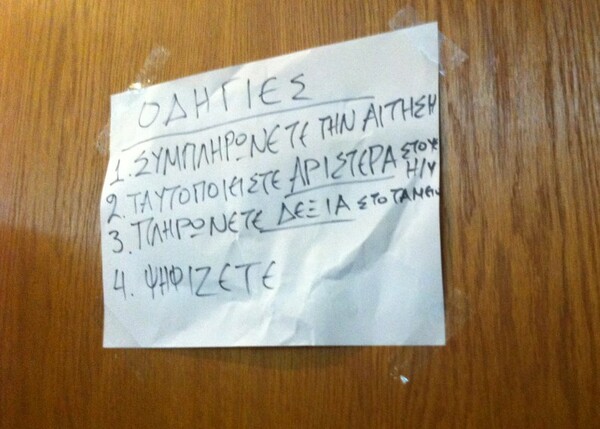 ΟΔΗΓΙΕΣ
1. ΣΥΜΠΛΗΡΩΝΕΤΕ ΤΗΝ ΑΙΤΗΣΗ
2. ΤΑΥΤΟΠΟΙΕΙΣΤΕ ΑΡΙΣΤΕΡΑ ΣΤΟΥΣ Η/Υ
3. ΠΛΗΡΩΝΕΤΕ ΔΕΞΙΑ ΣΤΟ ΤΑΜΕΙΟ
4. ΨΗΦΙΖΕΤΕ